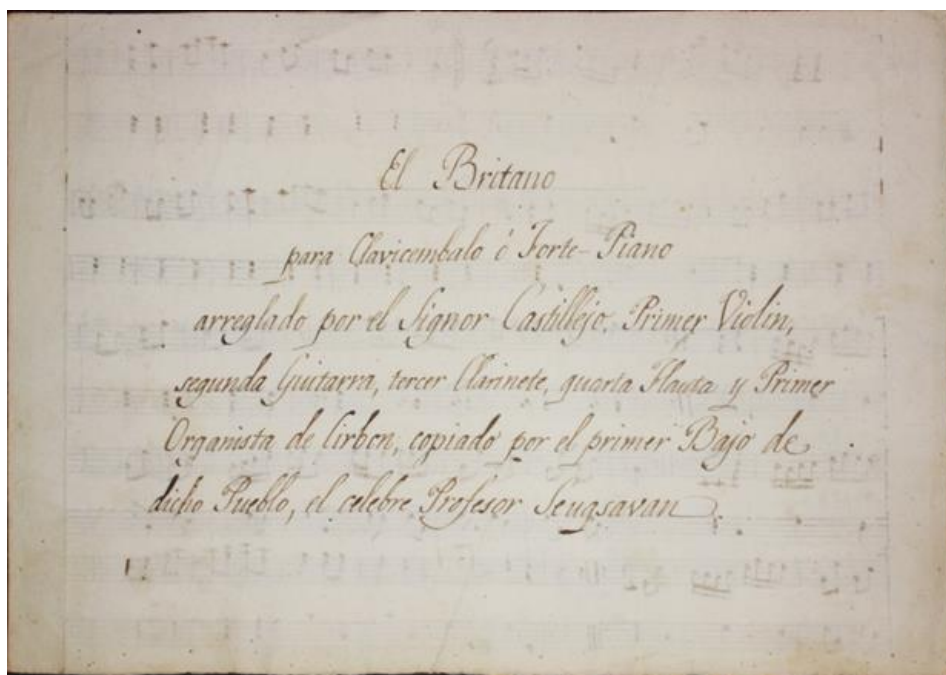 El Britano
para Clavicembalo ó Forte-Piano
arreglado por el Signor Castillejo, Primer Violin,
segunda Guitarra, tercer Clarinete, quarta Flauta y Primer
Organista de Cirbon, copiado por el primer Bajo de
dicho Pueblo, el celebre Profesor Seugsavan.